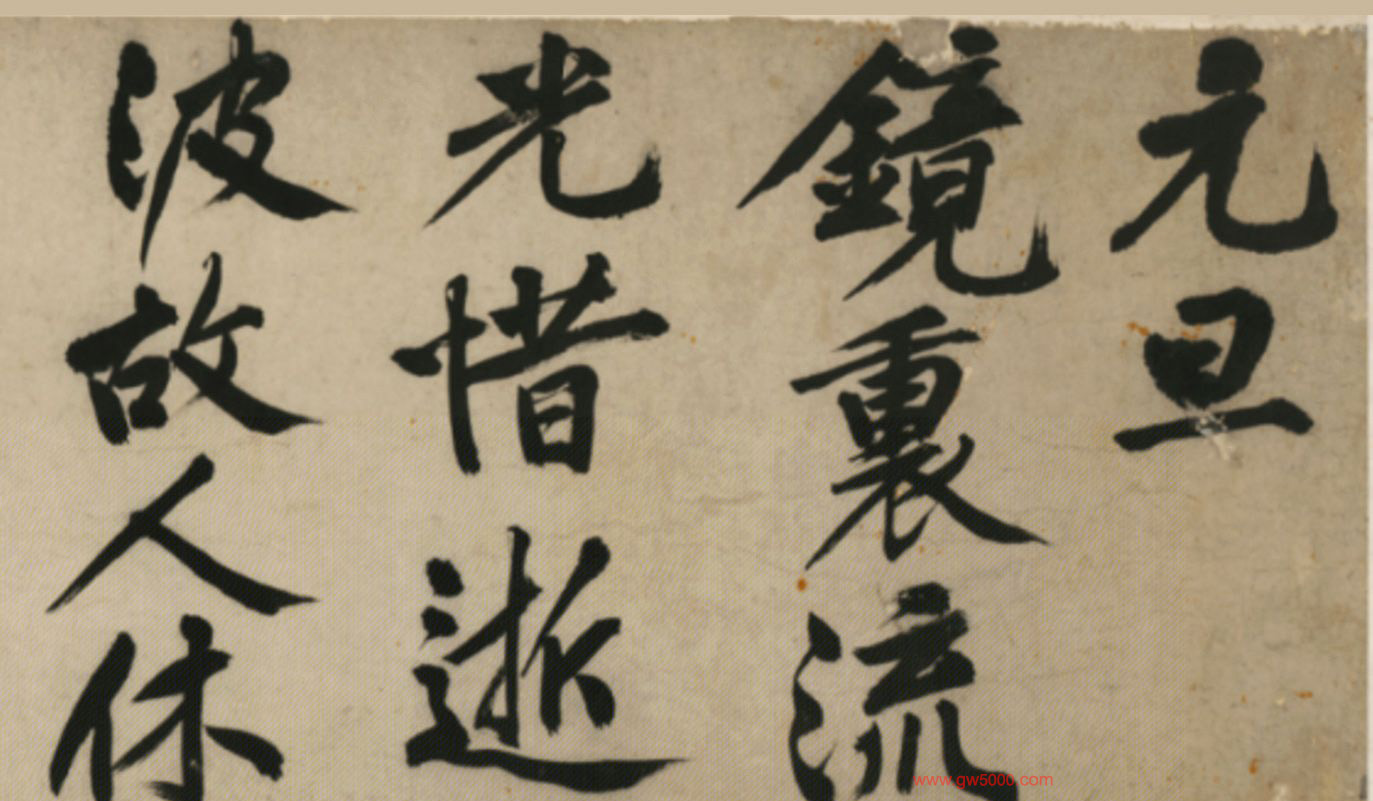 元旦
鏡裏流
光惜逝
波故人休
www.gw5000.com